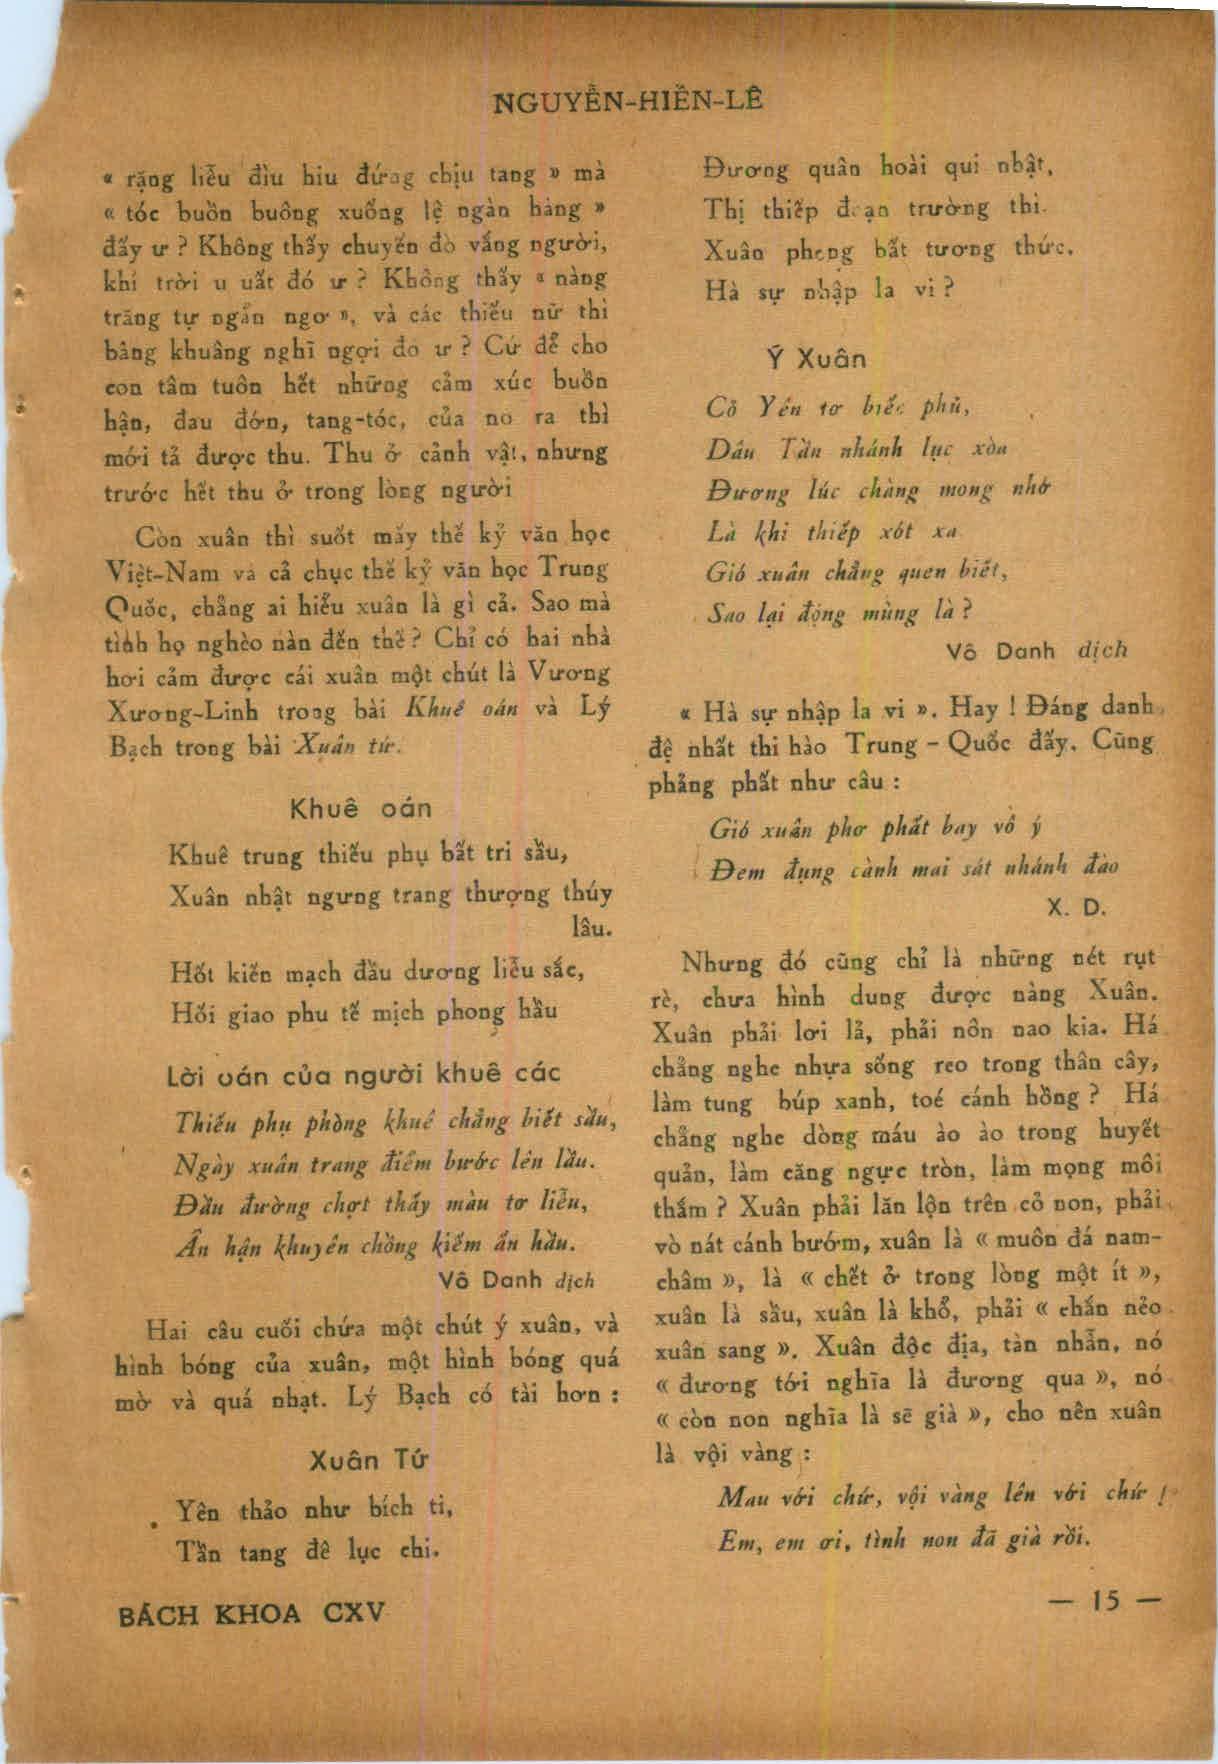 NGUYỄN-HIẾN-LÊ
« rặng liễu đìu hiu đứng chịu tang » mà
« tóc buồn buông xuống lệ ngàn hàng »
đấy ư ? Không thấy chuyến đò vắng người,
khí trời u uất đó ư ? Không thấy « nàng
trăng tự ngẩn ngơ », và các thiếu nữ thì
bâng khuâng nghĩ ngợi đó ư ? Cứ để cho
con tâm tuôn hết những cảm xúc buồn
hận, đau đớn, tang-tóc, của nó ra thì
mới tả được thu. Thu ở cảnh vật, nhưng
trước hết thu ở trong lòng người
Còn xuân thì suốt mấy thế kỷ văn học
Việt-Nam và cả chục thế kỷ văn học Trung
Quốc, chẳng ai hiểu xuân là gì cả. Sao mà
tình họ nghèo nàn đến thế ? Chỉ có hai nhà
hơi cảm được cái xuân một chút là Vương
Xương-Linh trong bài Khuê oán và Lý
Bạch trong bài Xuân tứ.
Khuê oán
Khuê trung thiếu phụ bất tri sầu,
Xuân nhật ngưng trang thượng thúy
lâu.
Hốt kiến mạch đầu dương liễu sắc,
Hối giao phu tế mịch phong hầu
Lời oán của người khuê các
Thiếu phụ phòng khuê chẳng biết sầu,
Ngày xuân trang điểm bước lên lầu.
Đầu đường chợt thấy màu tơ liễu,
Ân hận khuyên chồng kiếm ấn hầu.
Vô Danh dịch
Hai câu cuối chứa một chút ý xuân, và
hình bóng của xuân, một hình bóng quá
mờ và quá nhạt. Lý Bạch có tài hơn :
Xuân Tứ
Yên thảo như bích ti,
Tần tang đê lục chi.
BÁCH KHOA CXV
Đương quân hoài qui nhật,
Thị thiếp đoạn trường thì.
Xuân phong bất tương thức.
Hà sự nhập la vi ?
Ý Xuân
Cỏ Yên tơ biếc phủ,
Dâu Tần nhánh lục xòa
Đương lúc chàng mong nhớ
Là khi thiếp xót xa
Gió xuân chẳng quen biết,
Sao lại động mùng là ?
Vô Danh dịch
« Hà sự nhập la vi ». Hay ! Đáng danh
đệ nhất thi hào Trung - Quốc đấy. Cũng
phảng phất như câu :
Gió xuân phơ phất bay vô ý
Đem đụng cành mai sát nhánh đào
X. D.
Nhưng đó cũng chỉ là những nét rụt
rè, chưa hình dung được nàng Xuân.
Xuân phải lơi lả, phải nôn nao kia. Há
chẳng nghe nhựa sống reo trong thân cây,
làm tung búp xanh, toé cánh hồng ? Há
chẳng nghe dòng máu ào ào trong huyết
quản, làm căng ngực tròn, làm mọng môi
thắm ? Xuân phải lăn lộn trên cỏ non, phải
vò nát cánh bướm, xuân là « muôn đá nam-
châm », là « chết ở trong lòng một ít »,
xuân là sầu, xuân là khổ, phải « chắn nẻo
xuân sang ». Xuân độc địa, tàn nhẫn, nó
« đương tới nghĩa là đương qua », nó
« còn non nghĩa là sẽ già », cho nên xuân
là vội vàng :
Mau với chứ, vội vàng lên với chứ !
Em, em ơi, tình non đã già rồi.
— 15 —